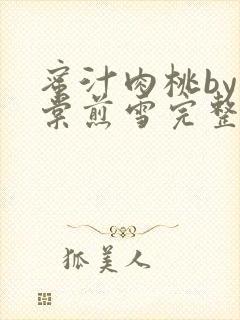 蜜汁肉桃by
棠煎雪完整
狐美人